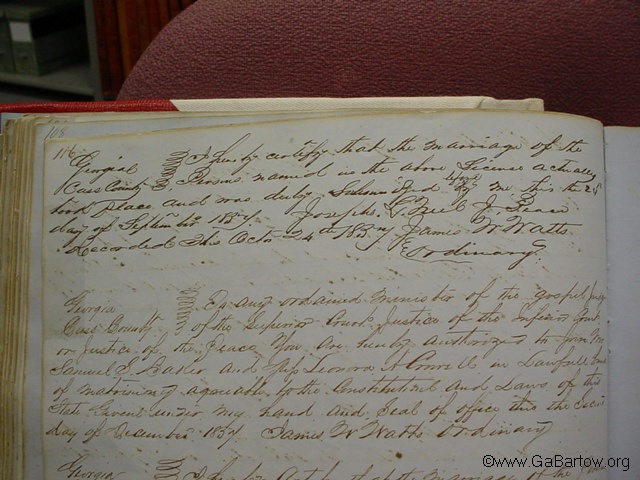 108
116
Georgia I hereby certify that the marriage of the
Cass County Persons named in the above License actually
took Place and was duly Solemnized by me this the 28
day of Septmbr 1857 Joseph
Recorded This Octr 24th 1857 James W Watts
Ordinary
Georgia To any ordained Minister of the gospel Judge
Cass County of the Superior Court Justice of the Inferior Court
or Justice of the Peace You are hereby authorized to Join
Samuel and Miss Leonora A in Lawfull
of matrimony agreeable to the Constitution and Laws of this
State Given under my hand and Seal of office this the
day of December 1857 James W Watts Ordinary
Georgia I the marriage of the
©www.GaBartow.org